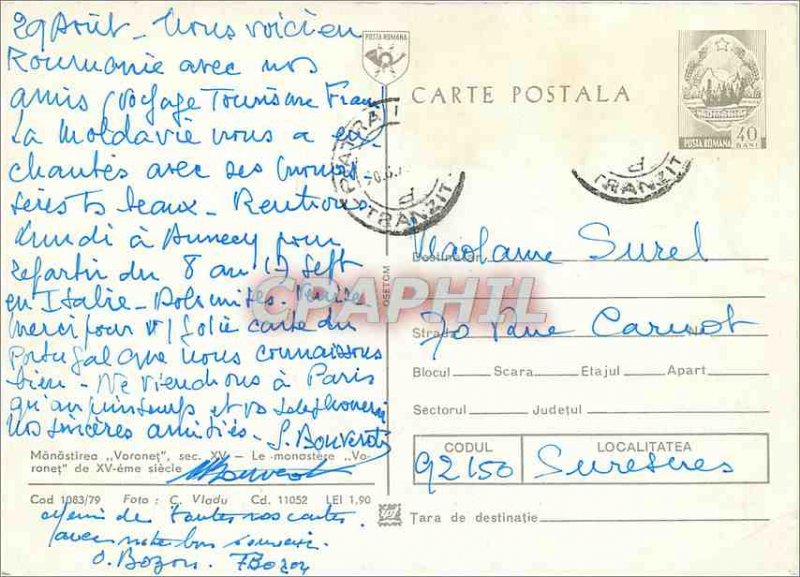 29 Août - Nous voici en
Roumanie avec nos
amis (voyage Tourisme Fran
La Moldavie nous a en-
chantés avec ses
très beaux - Rentrons
Lundi à Annecy pour
repartir du 8 au 17 Sept
en Italie - Dolomites -
merci pour v/ jolie carte du
Portugal que nous connaissons
bien - Ne viendrons à Paris
qu'au printemps et vs telephonerai
Nos sincères amitiés - S. Bouverot
Mănăstirea „Voroneţ", sec. XV - Le monastère „Vo-
roneţ" de XV-ème siècle
Bouverot
Cod 1083/79 Foto : C. Vladu Cd. 11052 LEI 1,90
de toutes nos cartes
avec notre bon souvenir.
O. Bozon FBozon
POSTA ROMANA
CARTE POSTALA
POSTA ROMANA 40 BANI
PIATRA
TRANZIT
TRANZIT
OSETCM
CPARPHIL
Destinatar Madame Surel
Strada 70 rue Carnot Nr.
Blocul Scara Etajul Apart
Sectorul Judeţul
CODUL LOCALITATEA
92150 Suresnes
Ţara de destinaţie